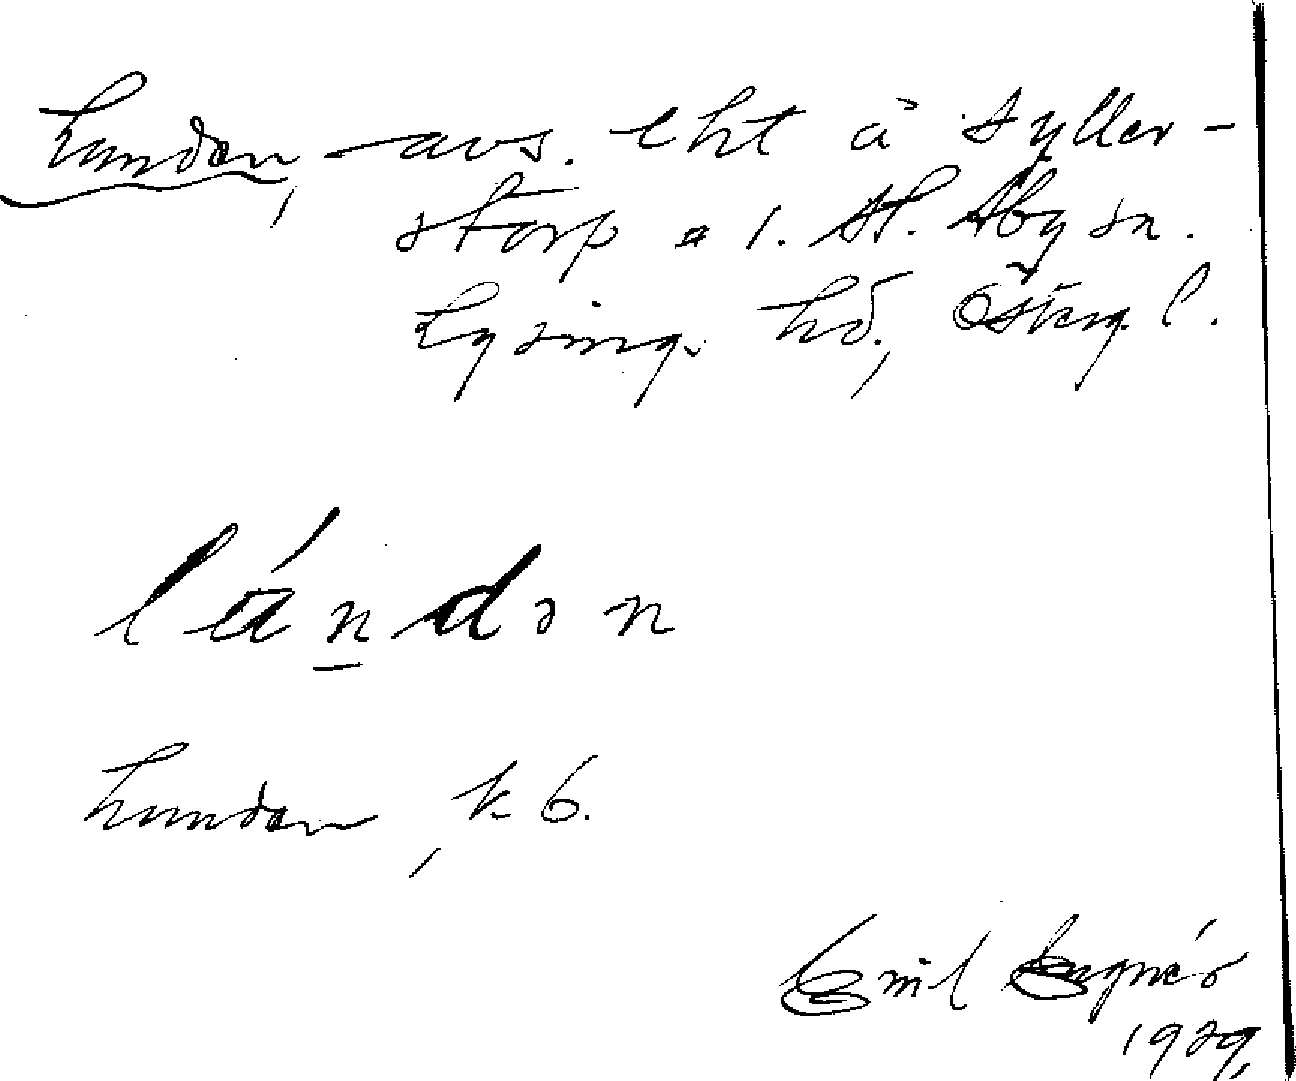 Lunden, avs. lht å Syller-
storp 1. St. Åby sn.
Lysings hd, Österg. l.
lándən
Lunden, k 6.
Emil
1929.